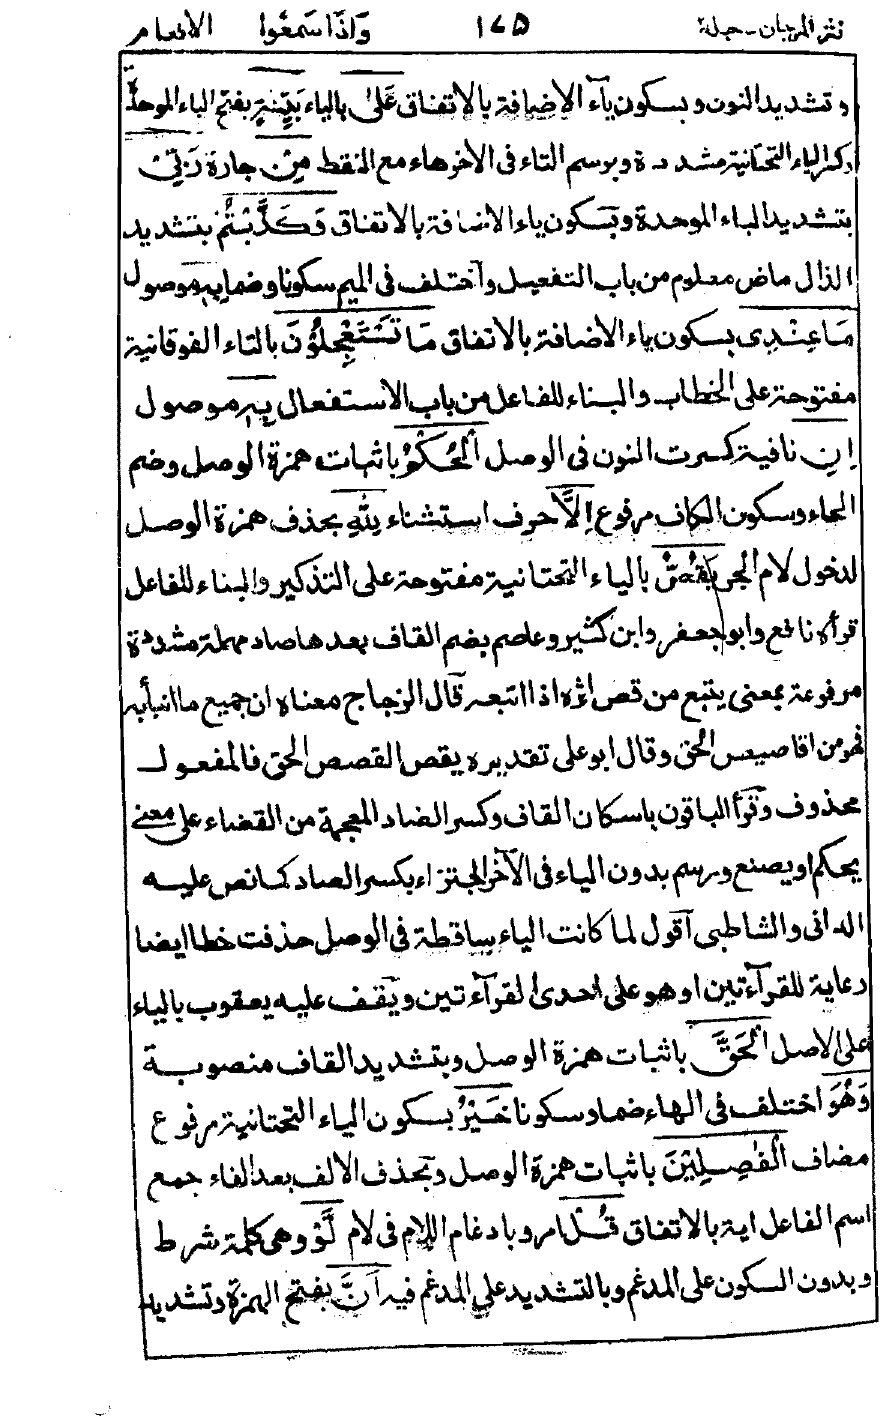 نثر المرجان - جلد ٢ ١٧٥ وَاِذَا سَمِعُوا الانعام
وتشديد النون وبسكون ياء الاضافة بالاتفاق عَلىٰ بالياء بَيِّنَةٍ بفتح الباء الموحدة
وكسر الياء التحتانية مشددة وبرسم التاء فى الأخر هاء مع النقط مِن جارة رَبِّي
بتشديد الباء الموحدة وبسكون ياء الاضافة بالاتفاق وَكَذَّبْتُمْ بتشديد
الذال ماض معلوم من باب التفعيل واختلف فى الميم سكونا وضما بِهٖ موصول
مَا عِنْدِى بسكون ياء الاضافة بالاتفاق مَا تَسْتَعْجِلُوْنَ بالتاء الفوقانية
مفتوحة على الخطاب والبناء للفاعل من باب الاستفعال بِهٖ موصول
اِنِ نافية كسرت النون فى الوصل اَلْحُكْمُ باثبات همزة الوصل وضم
الحاء وسكون الكاف مرفوع اِلَّا حرف استثناء لِلّٰهِ بحذف همزة الوصل
لدخول لام الجر يَقُصُّ بالياء التحتانية مفتوحة على التذكير والبناء للفاعل
قرأه نافع وابو جعفر وابن كثير وعاصم بضم القاف بعدها صاد مهملة مشددة
مرفوعة بمعنى يتبع من قص اثره اذا اتبعه قال الزجاج معناه ان جميع ما انبأ به
فهو من اقاصيص الحق وقال ابو على تقديره يقص القصص الحق فالمفعول
محذوف وقرأ الباقون باسكان القاف وكسر الضاد المعجمة من القضاء على معنى
يحكم او يصنع ورسم بدون الياء فى الآخر اجتزاء بكسر الضاد كما نص عليه
الدانى والشاطبى اقول لما كانت الياء ساقطة فى الوصل حذفت خطا ايضا
رعاية للقرآءتين او هو على احدى القرآءتين ويقف عليه يعقوب بالياء
على الاصل اَلْحَقَّ باثبات همزة الوصل وبتشديد القاف منصوبة
وَهُوَ اختلف فى الهاء ضما وسكونا خَيْرُ بسكون الياء التحتانية مرفوع
مضاف اَلْفٰصِلِيْنَ باثبات همزة الوصل وبحذف الالف بعد الفاء جمع
اسم الفاعل اية بالاتفاق قُلْ امر وبادغام اللام فى لام لَّوْ وهى كلمة شرط
وبدون السكون على المدغم وبالتشديد على المدغم فيه اَنَّ بفتح الهمزة وتشديد